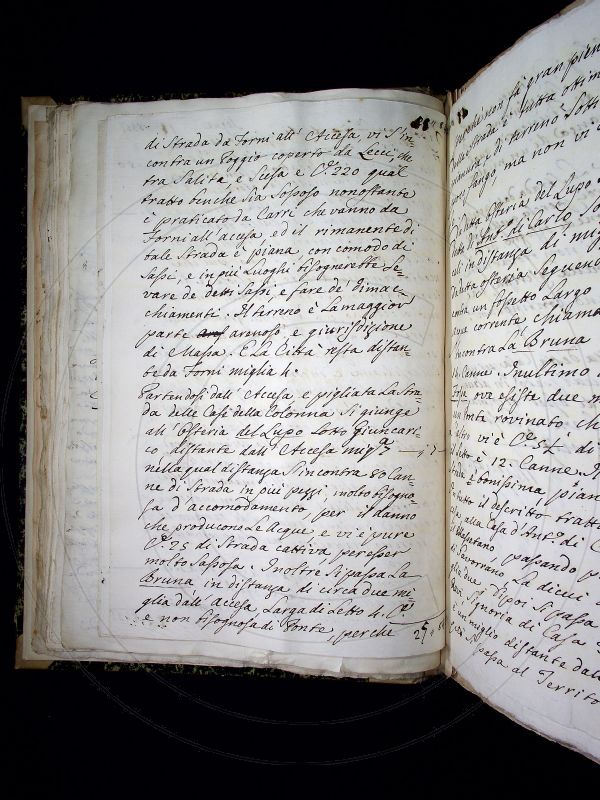 di Strada da Forni all' Accesa vi S'in=
contra un Poggio coperto da Lecci, en=
tra Salita, e Scesa e C.e 220 qual
tratto benche Sia Sassoso nonostante
è praticato da Carri che vanno da
Forni all' acesa ed il rimanente di
tale Strada è piana, con comodo di
Sassi, e in più Luoghi bisognerebbe Le=
vare de detti Sassi, e fare de' rimac=
chiamenti. Il terreno è La maggior
parte arenoso e giurisdizione
di Massa. E La Città resta distan=
te da Forni miglia 4.
Partendosi dall' Accesa e pigliata La Stra=
da delle Case della Colonna Si giunge
all' Osteria del Lupo Sotto Giuncari=
co distante dall' Accesa mig.a
nella qual distanza S'incontra 80 Can=
ne di Strada in più pezzi, molto bisogno=
sa d'accomodamento per il danno
che producono Le Acque, e vi è pure
C.e 25 di Strada cattiva per esser
molto Sassosa. Inoltre Si passa La
Bruna in distanza di circa due mi=
glia dall' Accesa Larga di Letto 4. C.e
e non bisognosa di Ponte perche
non fà gran pien
della Strada è tutta ottim
e di terreno Sott
fango, ma non vi
Osteria del Lupo
Ant. di Carlo So
all' in distanza di mig
osteria Seguen
contra un fossetto Largo
corrente chiama
Incontra La Bruna
14. Canne. In ultimo
ove esiste due
Ponte rovinato ch
altro vi è C.e 5 1/2
Letto è 12. Canne. In
Strada è bonissima piana
tutto il descritto tratt
alla Casa d'Ant.o di C
passando p
di Gavorrano, La dicui
due dipoi Si passa
Signoria di Casa
un miglio distante dall
Si passa al Territo